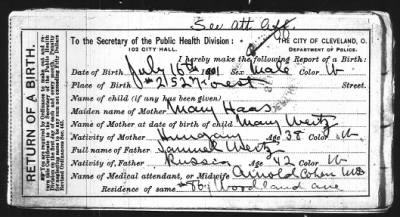 See att aff
To the Secretary of the Public Health Division: THE CITY OF CLEVELAND, O.
102 CITY HALL. DEPARTMENT OF POLICE.
I hereby make the following Report of a Birth:
Date of Birth July 15th 1901 Sex Male Color W
Place of Birth #2527 Street.
Name of child (if any has been given)
Maiden name of Mother Mary Haas
Name of Mother at date of birth of child Mary Wertz
Nativity of Mother Hungary Age 38 Color W
Full name of Father Samuel Wertz
Nativity of Father Russia Age 42 Color W
Name of Medical attendant, or Midwife Arnold Cohn MD
Residence of same Woodland ave
RETURN OF A BIRTH.